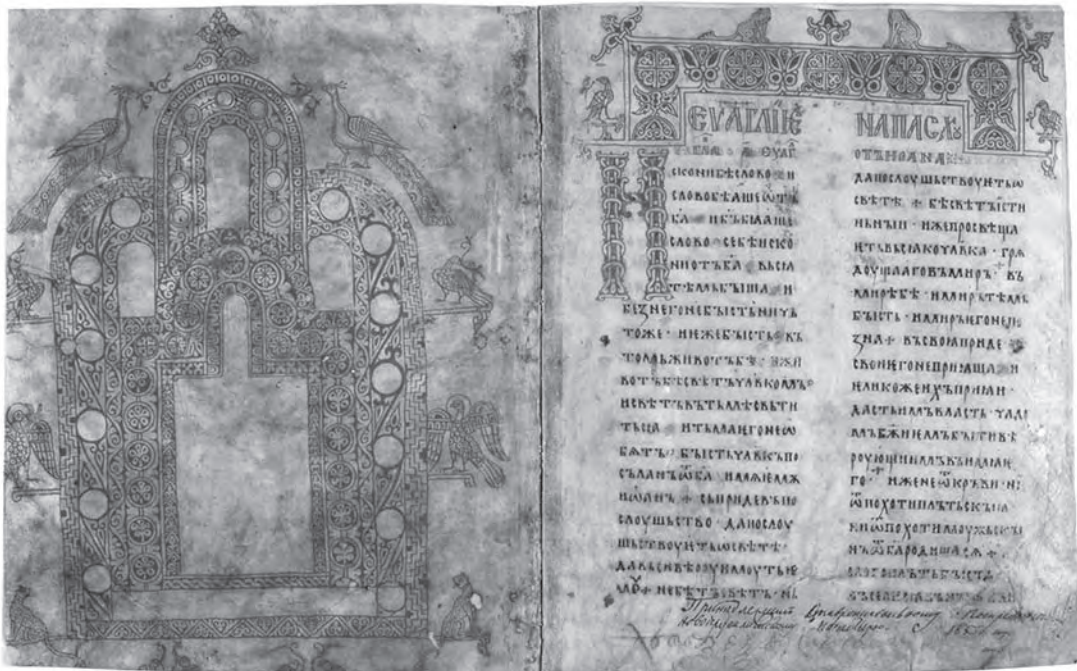 ЕУАГЛИѤ
искони бѣ слово и
слово бѣаше ѿ
ба и бъ бѣаше
слово се бѣ иско
ни отъ ба вьсꙗ
тѣмь быша и
без него не бъıсть ничь
тоже ниѥже бъıсть въ
томь животъ бѣ и жи
вотъ бѣ свѣтъ члвкомъ
и свѣтъ въ тьмѣ свьти
тьсѧ и тьма ѥго не ѡ
бѧтъ · бъıсть члвкъ по
съланъ ѿ ба имѧ ѥмоу
иѡанъ + сь приде въ по
слоушьство да послоу
шьствоуѥть ѡ свѣтѣ ·
да вьси вѣроу имоуть ѥ
моу + не бѣ тъ свѣтъ нъ
НАПАСХꙊ
отъ иоана
да послоушьствоуѥть ѡ
свѣтѣ + бѣ свѣтъ исти
ньнъıи · иже просвѣща
ѥть вьсꙗкого члвка · грѧ
доущаго въ миръ · въ
мирѣ бѣ · и миръ тѣмь
бъıсть · и миръ ѥго не по
зна + въ своꙗ приде ·
свои ѥго не приꙗша · и
ѥлико же ихъ приꙗтъ ·
дасть имъ власть · чадо
мъ бжиѥмъ бъıти вѣ
роующиимъ въ имѧ ѥ
го · иже не ѿ кръви ни
ѿ похоти плътьскъıꙗ
ни ѿ похоти моужьскъı
нъ ѿ ба родишасѧ +
слово плъть бъıсть
Принадлежащий